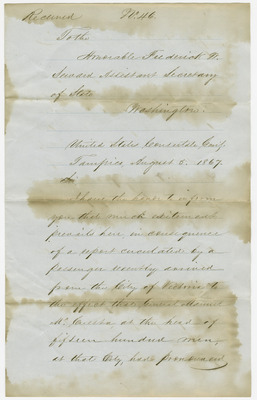 Received No. 46.
To the
Honorable Frederick W.
Seward Assistant Secretary
of State
Washington.
United States Consulate Genl
Tampico August 5. 1867.
Sir
I have the honor to inform
you that much excitement
prevails here in consequence
of a report circulated by a
passenger recently arrived
from the City of Victoria to
the effect that General
at the head of
fifteen hundred men,
at that City, have